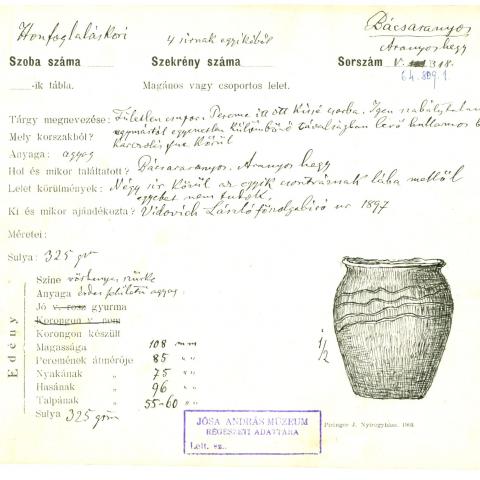 Honfoglaláskori 4 sírnak egyikéből Bácsaranyos
Aranyoshegy
Szoba száma Szekrény száma Sorszám V. 318.
64.809.1.
-ik tábla. Magános vagy csoportos lelet.
Tárgy megnevezése: Fületlen csupor. Pereme itt ott kissé csorba. Igen szabálytalan
Mely korszakból? egymástól egyenetlen különböző távolságban levő hullámos
karcolás fut körül
Anyaga: agyag
Hol és mikor találtatott? Bácsaranyos. Aranyos hegy
Lelet körülmények: Négy sír körül az egyik csontváznak lába mellől
egyebet nem tudok.
Ki és mikor ajándékozta? Vidovich László főszolgabíró úr 1897
Méretei:
Sulya: 325 gr
Edény
Színe vörhenyes szürke
Anyaga érdes felületű agyag
Jó v. rosz gyurma
Korongon v. nem
Korongon készült
Magassága 108 mm
Peremének átmérője 85 " "
Nyakának " 75 " "
Hasának " 96 " "
Talpának " 55-60 " "
Sulya 325 grm
1/2
JÓSA ANDRÁS MÚZEUM
RÉGÉSZETI ADATTÁRA
Lelt. sz.
Piringer J. Nyíregyháza.